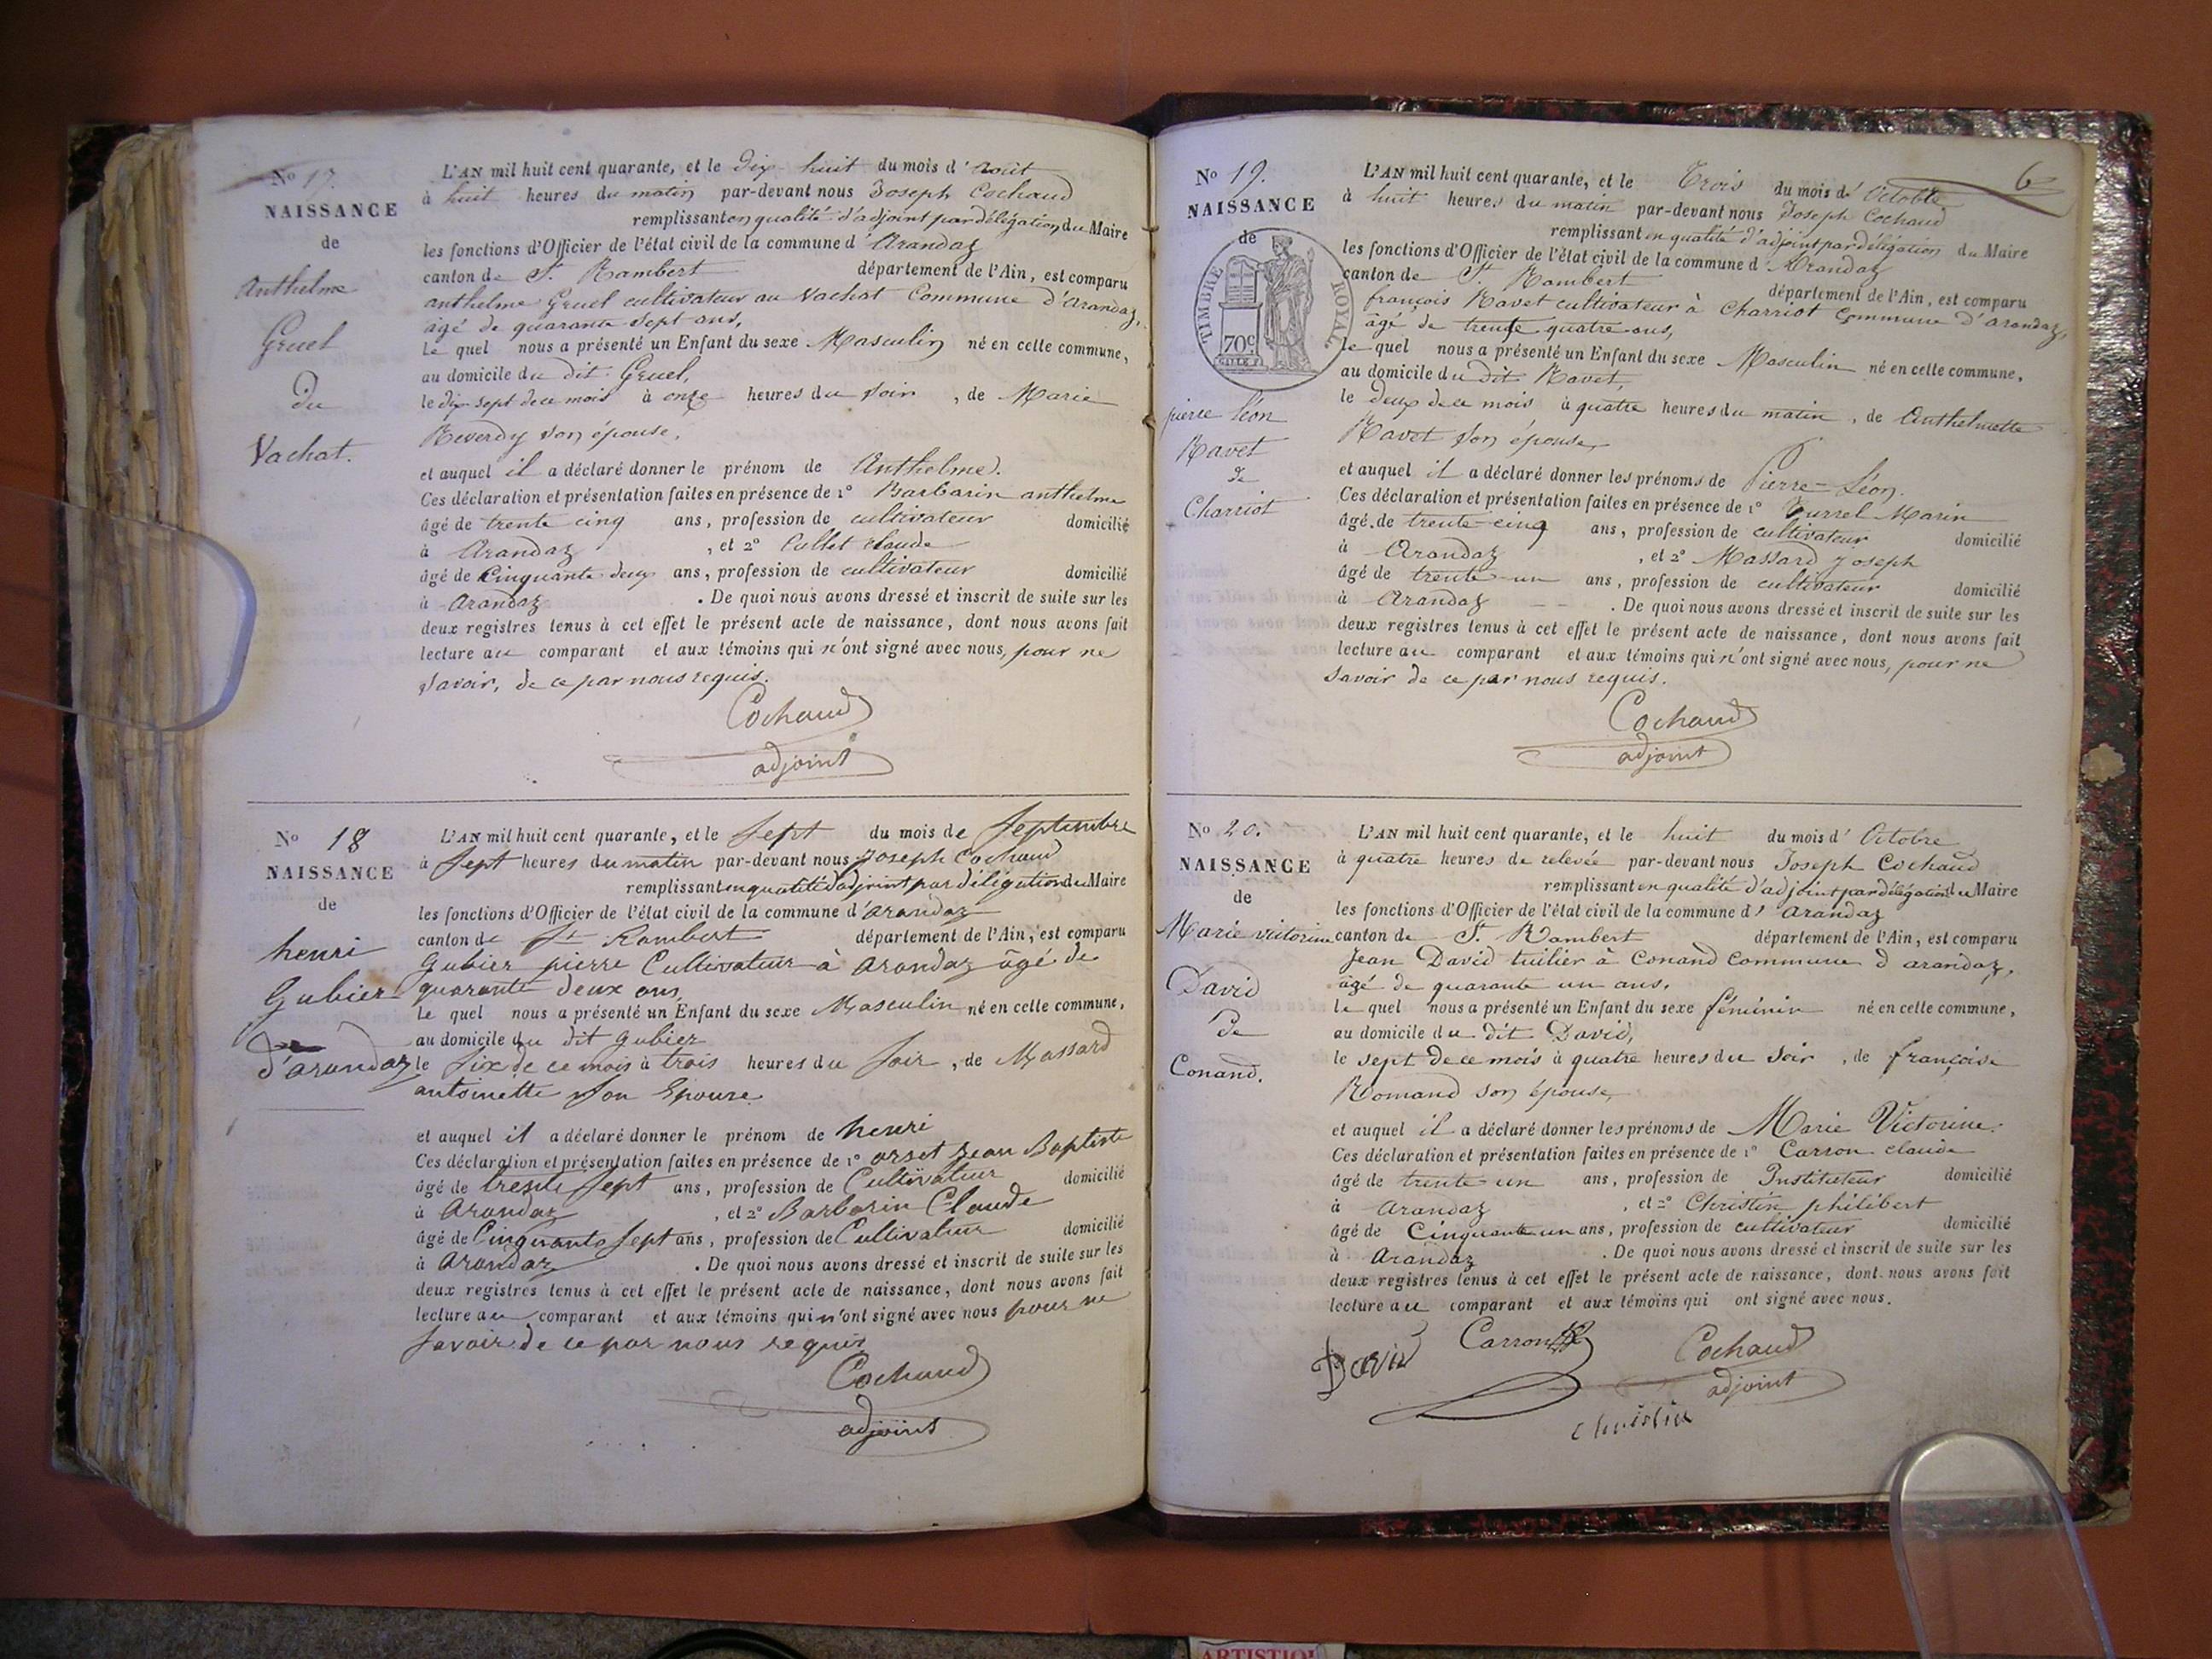 No 17.
NAISSANCE
de
Anthelme
Gruel
du
Vachat.
L'AN mil huit cent quarante, et le dix huit du mois d'Août
à huit heures du matin par-devant nous Joseph Cochaud
remplissant en qualité d'adjoint par délégation du Maire
les fonctions d'Officier de l'état civil de la commune d'Arandaz
canton de St. Rambert département de l'Ain, est comparu
anthelme Gruel cultivateur au Vachat Commune d'arandaz,
âgé de quarante sept ans,
Le quel nous a présenté un Enfant du sexe Masculin né en cette commune,
au domicile du dit Gruel,
le dix sept de ce mois à onze heures du soir, de Marie
Reverdy son épouse,
et auquel il a déclaré donner le prénom de Anthelme.
Ces déclaration et présentation faites en présence de 1º Barbarin anthelme
âgé de trente cinq ans, profession de cultivateur domicilié
à Arandaz, et 2º Cullet claude
âgé de Cinquante deux ans, profession de cultivateur domicilié
à Arandaz. De quoi nous avons dressé et inscrit de suite sur les
deux registres tenus à cet effet le présent acte de naissance, dont nous avons fait
lecture au comparant et aux témoins qui n'ont signé avec nous, pour ne
savoir, de ce par nous requis.
Cochaud
adjoint
No 18
NAISSANCE
de
henri
Gubier
d'arandaz
L'AN mil huit cent quarante, et le sept du mois de Septembre
à sept heures du matin par-devant nous Joseph Cochaud
remplissant en qualité d'adjoint par délégation du Maire
les fonctions d'Officier de l'état civil de la commune d'arandaz
canton de St Rambert département de l'Ain, est comparu
Gubier pierre Cultivateur à Arandaz âgé de
quarante deux ans,
Le quel nous a présenté un Enfant du sexe Masculin né en cette commune,
au domicile du dit Gubier
le six de ce mois à trois heures du soir, de Massard
antoinette son Epouse
et auquel il a déclaré donner le prénom de henri
Ces déclaration et présentation faites en présence de 1º orset Jean Baptiste
âgé de trente sept ans, profession de Cultivateur domicilié
à Arandaz, et 2º Barbarin Claude
âgé de Cinquante sept ans, profession de Cultivateur domicilié
à Arandaz. De quoi nous avons dressé et inscrit de suite sur les
deux registres tenus à cet effet le présent acte de naissance, dont nous avons fait
lecture au comparant et aux témoins qui n'ont signé avec nous pour ne
savoir de ce par nous requis
Cochaud
adjoint
6
No 19.
NAISSANCE
de
TIMBRE ROYAL
70c
pierre léon
Ravet
de
Charriot
L'AN mil huit cent quarante, et le Trois du mois d'Octobre
à huit heures du matin par-devant nous Joseph Cochaud
remplissant en qualité d'adjoint par délégation du Maire
les fonctions d'Officier de l'état civil de la commune d'Arandaz
canton de St. Rambert département de l'Ain, est comparu
françois Ravet cultivateur à Charriot Commune d'arandaz,
âgé de trente quatre ans,
le quel nous a présenté un Enfant du sexe Masculin né en cette commune,
au domicile du dit Ravet,
le deux de ce mois à quatre heures du matin, de Anthelmette
Ravet son épouse,
et auquel il a déclaré donner les prénoms de Pierre-Léon.
Ces déclaration et présentation faites en présence de 1º Jurrel Marin
âgé de trente-cinq ans, profession de cultivateur domicilié
à Arandaz, et 2º Massard Joseph
âgé de trente-un ans, profession de cultivateur domicilié
à Arandaz. De quoi nous avons dressé et inscrit de suite sur les
deux registres tenus à cet effet le présent acte de naissance, dont nous avons fait
lecture au comparant et aux témoins qui n'ont signé avec nous, pour ne
savoir de ce par nous requis.
Cochaud
adjoint
No 20.
NAISSANCE
de
Marie victorine
David
de
Conand.
L'AN mil huit cent quarante, et le huit du mois d'Octobre
à quatre heures de relevée par-devant nous Joseph Cochaud
remplissant en qualité d'adjoint par délégation du Maire
les fonctions d'Officier de l'état civil de la commune d'arandaz
canton de St. Rambert département de l'Ain, est comparu
Jean David tuilier à Conand Commune d'arandaz,
âgé de quarante un ans.
Le quel nous a présenté un Enfant du sexe féminin né en cette commune,
au domicile du dit David,
le sept de ce mois à quatre heures du soir, de françoise
Romand son épouse,
et auquel il a déclaré donner les prénoms de Marie Victorine.
Ces déclaration et présentation faites en présence de 1º Carron claude
âgé de trente-un ans, profession de Instituteur domicilié
à Arandaz, et 2º Christin philibert
âgé de Cinquante un ans, profession de cultivateur domicilié
à Arandaz. De quoi nous avons dressé et inscrit de suite sur les
deux registres tenus à cet effet le présent acte de naissance, dont nous avons fait
lecture au comparant et aux témoins qui ont signé avec nous.
David Carron Cochaud
adjoint
christin
ARTISTIQU